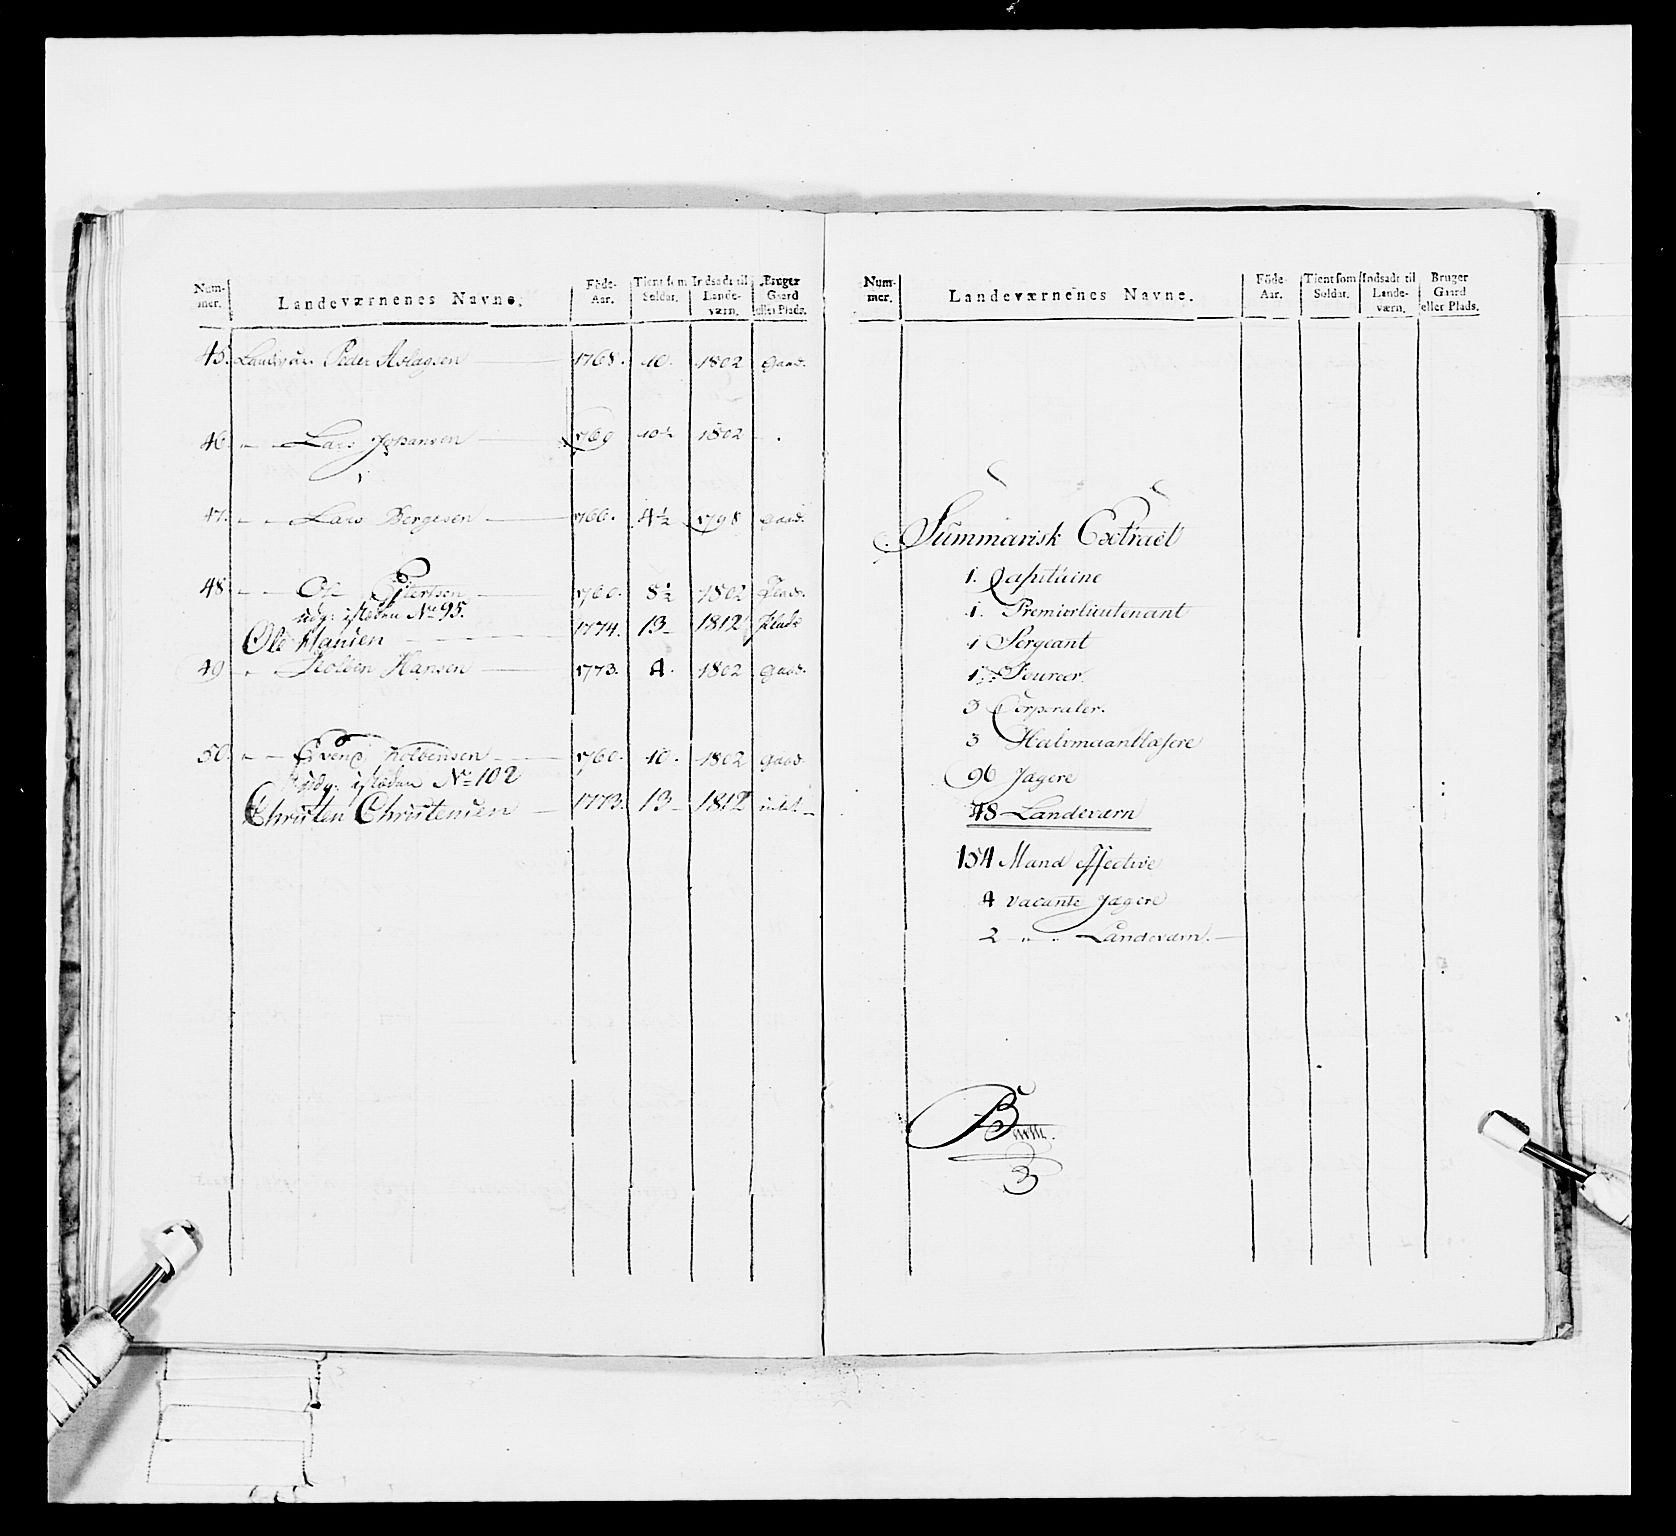 Num-mer. Landeværnenes Navne. Föde-Aar. Tient som Soldat. Indsadt til Lande-værn. Bruger Gaard eller Plads.
45. Landværn Peder Aslagsen 1768. 10. 1802 Gaad.
46. " Lars Johansen 1769 10½ 1802 "
47. " Lars Bergesen 1766. 4½ 1798 Gaad.
48 " Ole 1760. 8½ 1802 Plads.
udg: isteden No 95.
Ole Hansen 1774. 13 1812 Plads
49 " Kolben Hansen 1773. 4. 1802 Gaad.
50. " Svend Kolbensen 1760. 10. 1802 Gaad.
udg: isteden No 102
Christen Christensen 1773. 13 1812
Num-mer. Landeværnenes Navne. Föde-Aar. Tient som Soldat. Indsadt til Lande-værn. Bruger Gaard eller Plads.
Summarisk Extract
1. Capitaine
1. Premierlieutenant
1 Sergeant
1 Fourer.
3 Corporaler.
3 Halvmaanblæsere
96 Jægere
48 Landeværn
154 Mand effective
4 vacante Jægere
2 " " Landeværn.